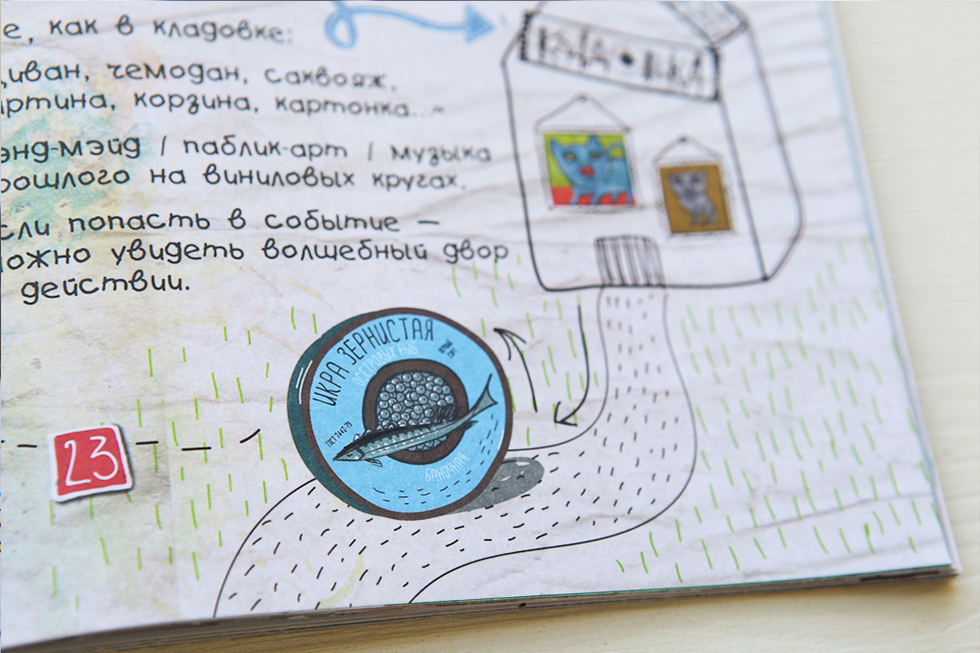 е, как в кладовке:
диван, чемодан, саквояж,
картина, корзина, картонка...
энд-мэйд / паблик-арт / музыка
рошлого на виниловых кругах.
сли попасть в событие —
ожно увидеть волшебный двор
действии.
ИКРА ЗЕРНИСТАЯ
ОСЕТРОВЫХ РЫБ
БАНОЧНАЯ
23